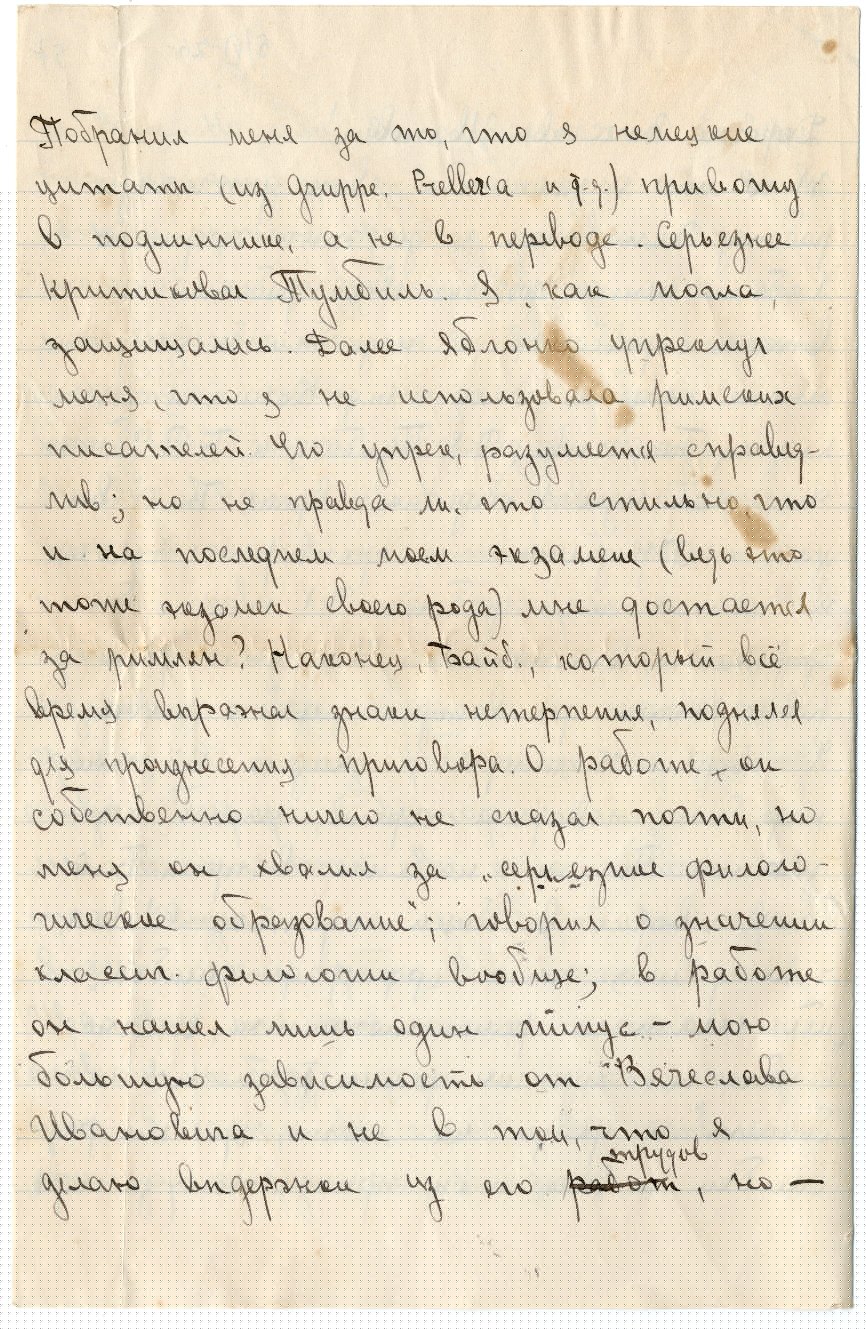 Побранил меня за то, что я немецкие
цитаты (из Gruppe, Preller'а и т.д.) привожу
в подлиннике, а не в переводе. Серьезнее
критиковал Тумбиль. Я, как могла,
защищалась. Далее Яблонко упрекнул
меня, что я не использовала римских
писателей. Его упрек, разумеется справед-
лив; но не правда ли, это стильно, что
и на последнем моем экзамене (ведь это
тоже экзамен своего рода) мне достается
за римлян? Наконец, Байб., который всё
время выражал знаки нетерпения, поднялся
для произнесения приговора. О работе он
собственно ничего не сказал почти, но
меня он хвалил за „серьезное филоло-
гическое образование"; говорил о значении
классич. филологии вообще; в работе
он нашел лишь один минус – мою
бóльшую зависимость от Вячеслава
Ивановича и не в том, что я
делаю выдержки из его работ трудов, но —